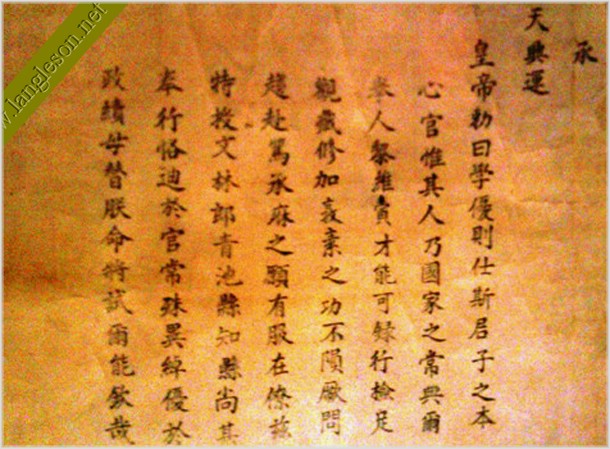 承
天興運
皇帝勅曰學優則仕斯君子之本
心官惟其人乃國家之常典爾
人黎維才能可錄行撿足
觀藏修加之功不隕厥問
趨赴篤承庥之願有服在僚茲
特授文林郎青池縣知縣尚其
奉行恪迪於官常殊異綽優於
政績毋替朕命將試爾能欽哉
www.langleson.net